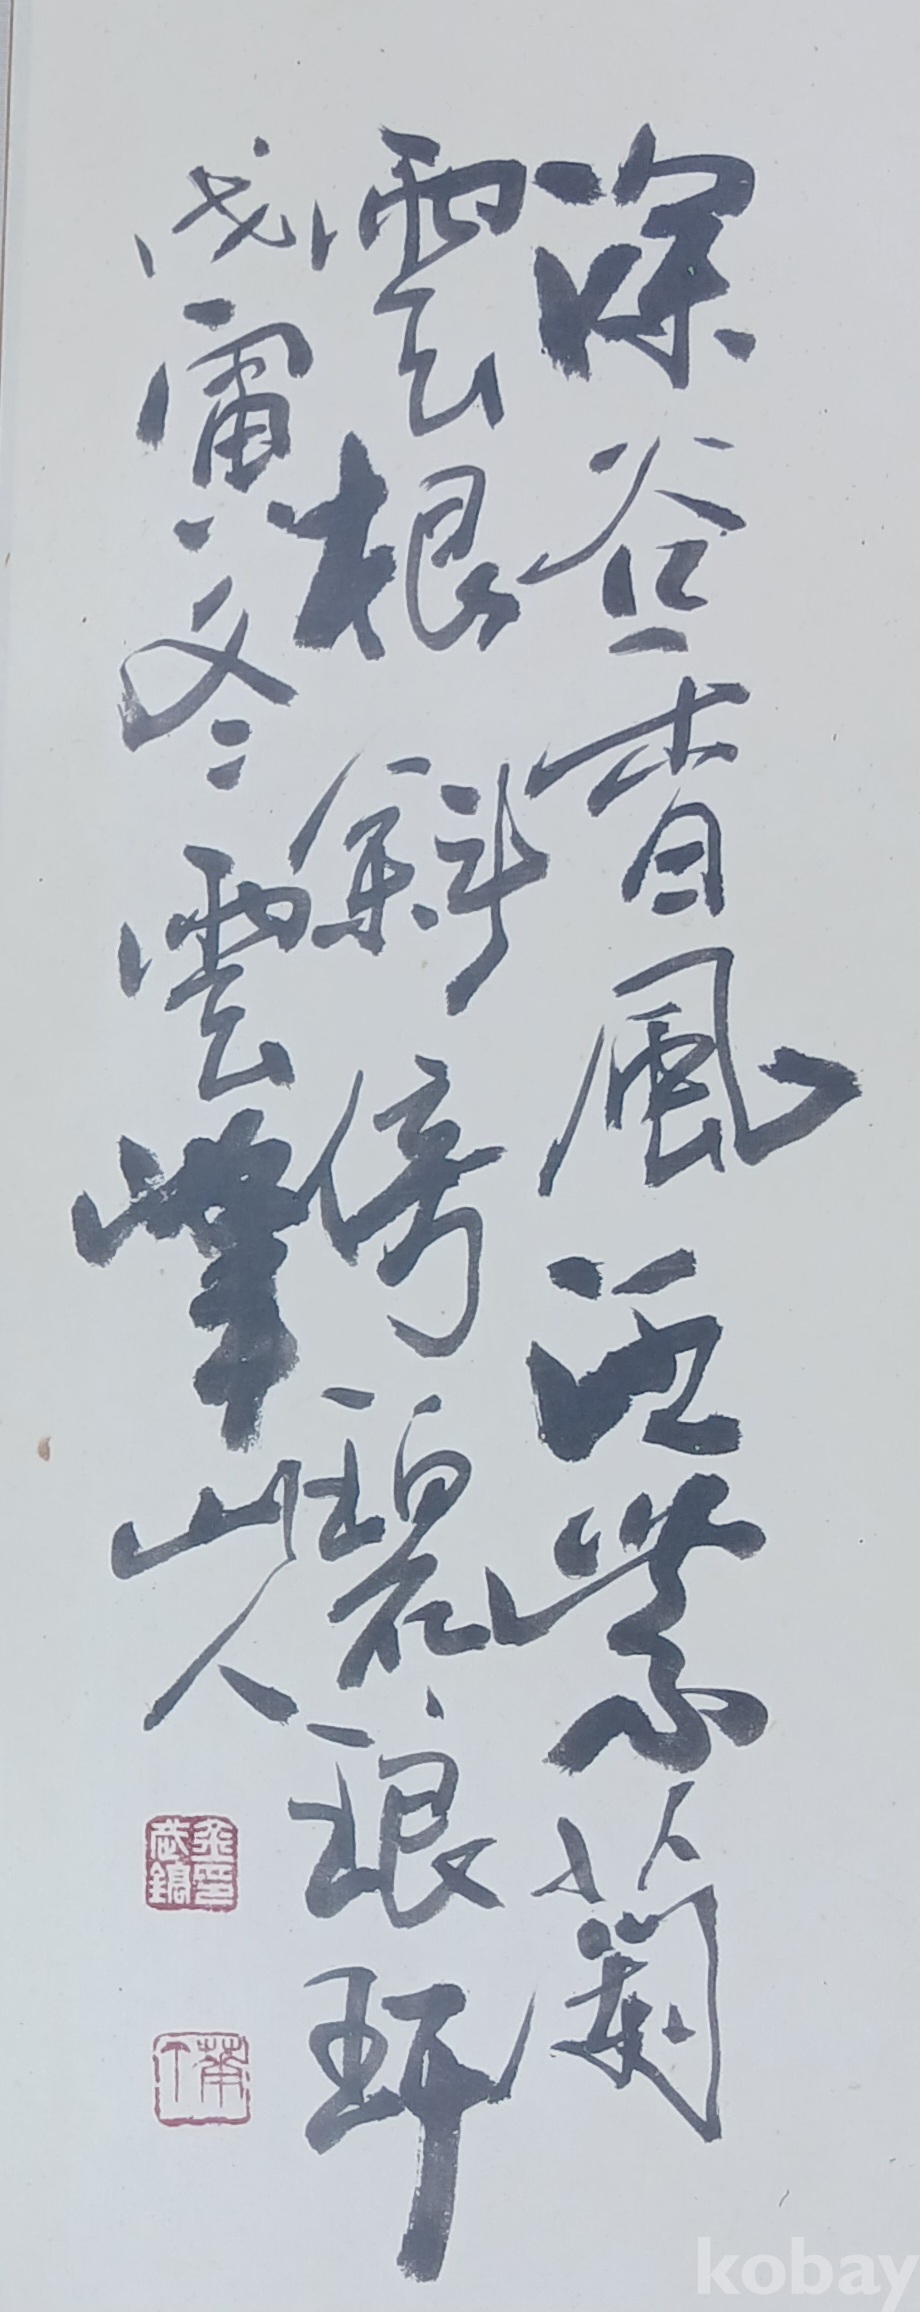 深谷香風泛紫蘭
雲根斜倚碧琅玕
戊寅冬雲峯山人
kobay